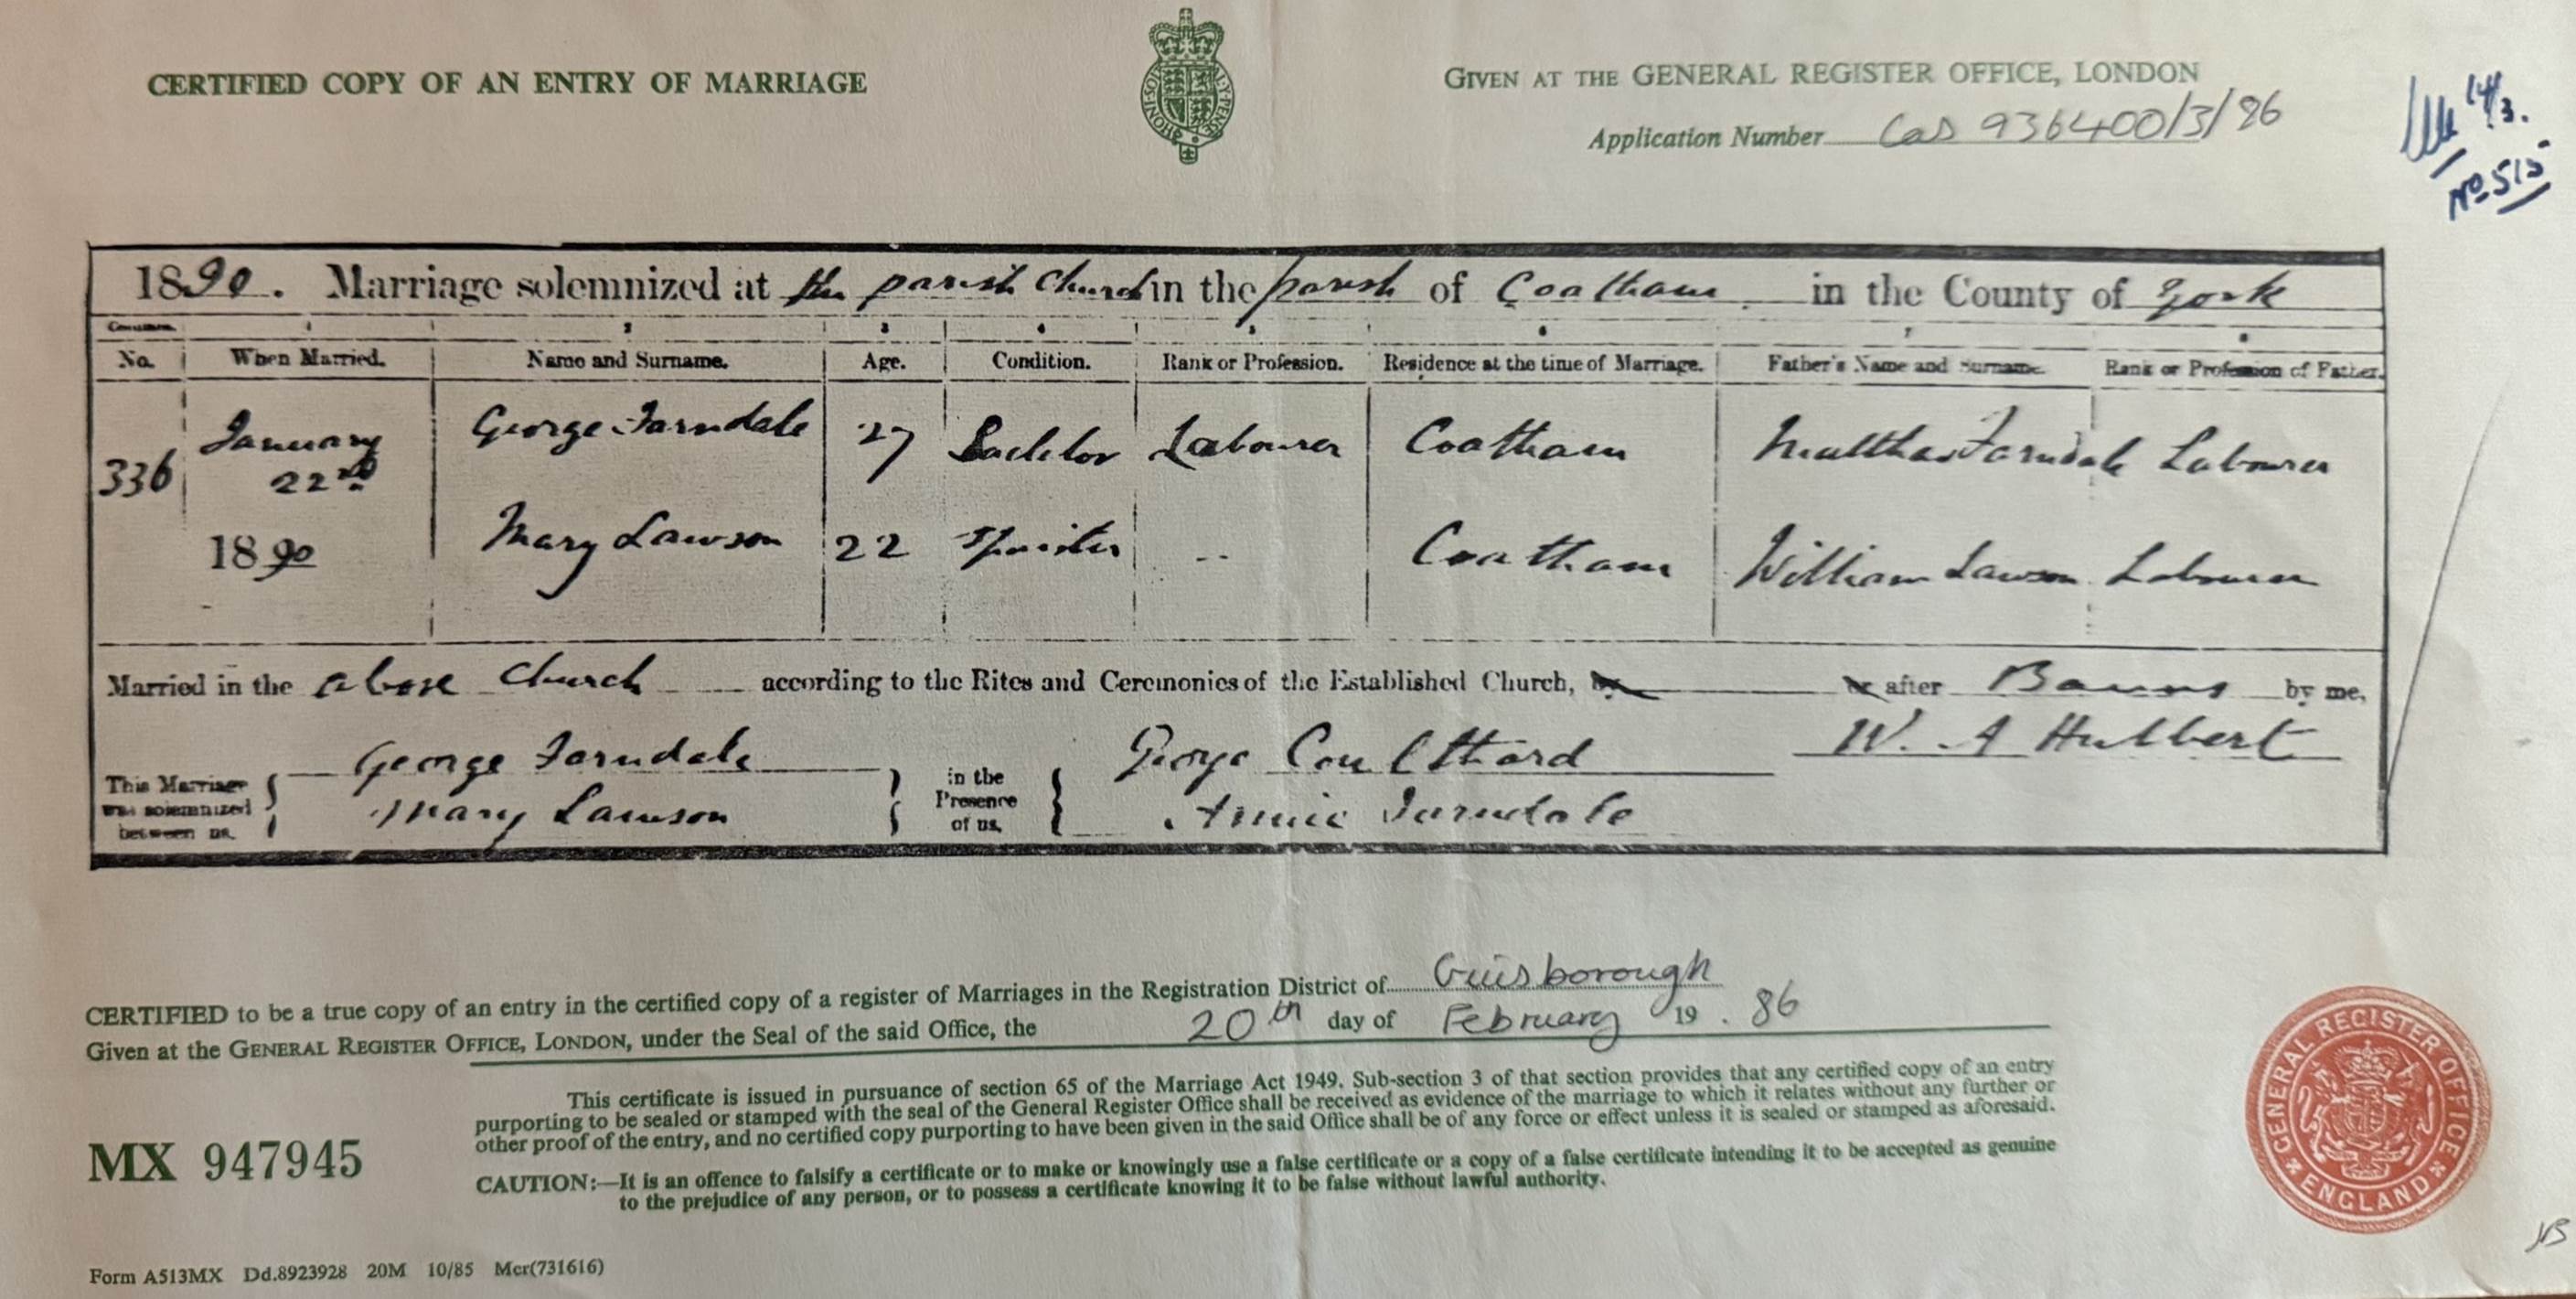 CERTIFIED COPY OF AN ENTRY OF MARRIAGE
GIVEN AT THE GENERAL REGISTER OFFICE, LONDON
Application Number Cas 936400/3/86
14/3.
No 515
1890. Marriage solemnized at the parish Church in the parish of Coatham in the County of York
1 2 3 4 5 6 7 8
No. When Married. Name and Surname. Age. Condition. Rank or Profession. Residence at the time of Marriage. Father's Name and Surname. Rank or Profession of Father.
336 January 22nd George Farndale 27 Bachelor Labourer Coatham Matthew Farndale Labourer
1890 Mary Lawson 22 Spinster -- Coatham William Lawson Labourer
Married in the above Church according to the Rites and Ceremonies of the Established Church, by or after Banns by me,
W. A Hulbert
This Marriage was solemnized between us, George Farndale in the Presence of us, George Coulthard
Mary Lawson Annie Farndale
CERTIFIED to be a true copy of an entry in the certified copy of a register of Marriages in the Registration District of Guisborough
Given at the GENERAL REGISTER OFFICE, LONDON, under the Seal of the said Office, the 20th day of February 19 . 86
This certificate is issued in pursuance of section 65 of the Marriage Act 1949. Sub-section 3 of that section provides that any certified copy of an entry
purporting to be sealed or stamped with the seal of the General Register Office shall be received as evidence of the marriage to which it relates without any further or
other proof of the entry, and no certified copy purporting to have been given in the said Office shall be of any force or effect unless it is sealed or stamped as aforesaid.
MX 947945
CAUTION:—It is an offence to falsify a certificate or to make or knowingly use a false certificate or a copy of a false certificate intending it to be accepted as genuine
to the prejudice of any person, or to possess a certificate knowing it to be false without lawful authority.
GENERAL REGISTER OFFICE ENGLAND
Form A513MX Dd.8923928 20M 10/85 Mcr(731616)